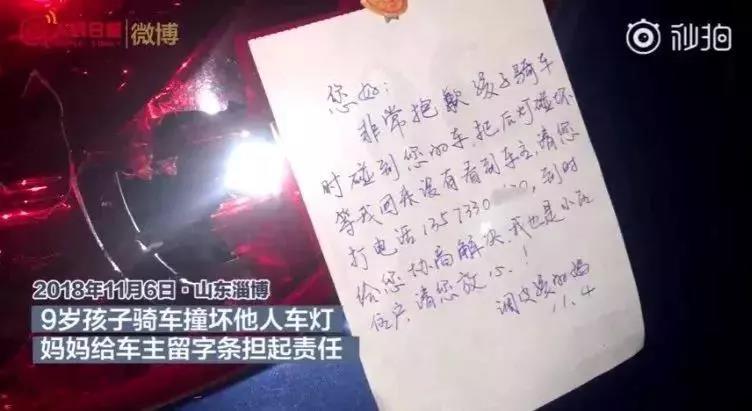 微博
秒拍
您好:
非常抱歉孩子骑车
时碰到您的车.把后灯碰坏
等我回来没有看到车主.请您
打电话 到时
给您协商解决.我也是小区
住户.请您放心!
调皮孩的妈
11.4
2018年11月6日·山东淄博
9岁孩子骑车撞坏他人车灯
妈妈给车主留字条担起责任